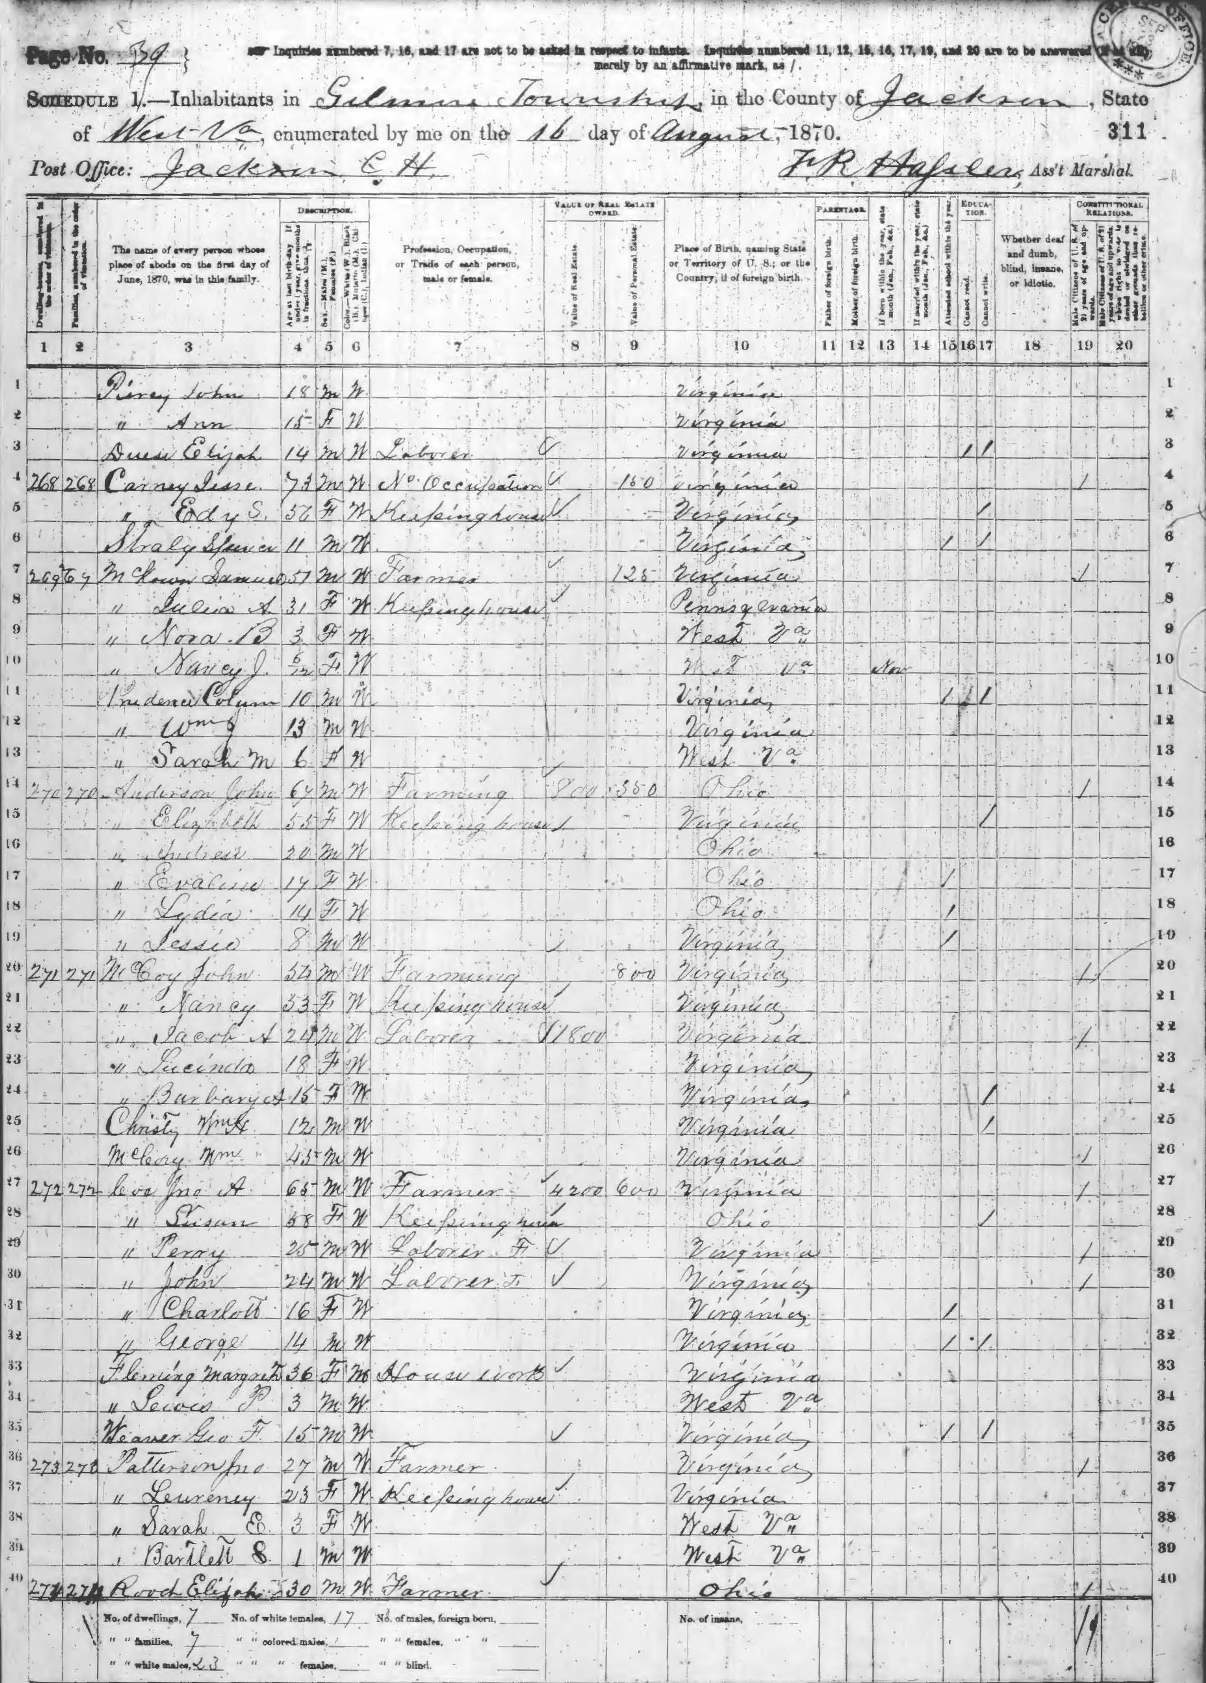 Page No. 39
Inquiries numbered 7, 16, and 17 are not to be asked in respect to infants. Inquiries numbered 11, 12, 15, 16, 17, 19, and 20 are to be answered (if at all)
merely by an affirmative mark, as /.
CENSUS OFFICE
SCHEDULE 1.—Inhabitants in Gilmore Township, in the County of Jackson, State
of West Va, enumerated by me on the 16 day of August, 1870. 311
Post Office: Jackson C. H. F R Hassler, Ass't Marshal.
DESCRIPTION. VALUE OF REAL ESTATE OWNED. PARENTAGE. EDUCATION. CONSTITUTIONAL RELATIONS.
Dwelling-houses, numbered in the order of visitation.
Families, numbered in the order of visitation.
The name of every person whose place of abode on the first day of June, 1870, was in this family.
Age at last birth-day. If under 1 year, give months in fractions, thus, 3/12
Sex.—Males (M.), Females (F.)
Color.—White (W.), Black (B.), Mulatto (M.), Chinese (C.), Indian (I.)
Profession, Occupation, or Trade of each person, male or female.
Value of Real Estate.
Value of Personal Estate.
Place of Birth, naming State or Territory of U. S.; or the Country, if of foreign birth.
Father of foreign birth.
Mother of foreign birth.
If born within the year, state month (Jan., Feb., &c.)
If married within the year, state month (Jan., Feb., &c.)
Attended school within the year.
Cannot read.
Cannot write.
Whether deaf and dumb, blind, insane, or idiotic.
Male Citizens of U. S. of 21 years of age and upwards.
Male Citizens of U. S. of 21 years of age and upwards whose right to vote is denied or abridged on other grounds than rebellion or other crime.
1 2 3 4 5 6 7 8 9 10 11 12 13 14 15 16 17 18 19 20
1 Piercy John 18 M W Virginia 1
2 " Ann 15 F W Virginia 2
3 Elijah 14 M W Laborer Virginia / / 3
4 268 268 Carney Jesse 73 M W No Occupation 150 Virginia / 4
5 " Edy S. 56 F W Keeping house Virginia / 5
6 Straly Spencer 11 M W Virginia / / 6
7 269 269 Samuel 51 M W Farmer 125 Virginia / 7
8 " Julia A 31 F W Keeping house Pennsylvania 8
9 " Nora B 3 F W West Va 9
10 " Nancy J. 6/12 F W West Va Nov 10
11 Colum 10 M W Virginia / / 11
12 " Wm J 13 M W Virginia 12
13 " Sarah M 6 F W West Va 13
14 270 270 Anderson John 67 M W Farming 800 350 Ohio / 14
15 " Elizabeth 55 F W Keeping house Virginia / 15
16 " Andrew 20 M W Ohio 16
17 " Evaline 17 F W Ohio / 17
18 " Lydia 14 F W Ohio / 18
19 " Jessie 8 M W Virginia / 19
20 271 271 McCoy John 54 M W Farming 800 Virginia / 20
21 " Nancy 53 F W Keeping house Virginia 21
22 " Jacob A 24 M W Laborer 1800 Virginia / 22
23 " Lucinda 18 F W Virginia 23
24 " Barbary A 15 F W Virginia / 24
25 Christy Wm H 12 M W Virginia / 25
26 Wm 45 M W Virginia / 26
27 272 272 Jno A 65 M W Farmer 4200 600 Virginia / 27
28 " Susan 58 F W Keeping house Ohio / 28
29 " Perry 25 M W Laborer F Virginia / 29
30 " John 24 M W Laborer F Virginia / 30
31 " Charlott 16 F W Virginia / 31
32 " George 14 M W Virginia / / 32
33 Fleming Margret 36 F House work Virginia 33
34 " Lewis P 3 M W West Va 34
35 Weaver Geo F. 15 M W Virginia / / 35
36 273 273 Patterson Jno 27 M W Farmer Virginia / 36
37 " Leureney 23 F W Keeping house Virginia 37
38 " Sarah E 3 F W West Va 38
39 " Bartlett S. 1 M W West Va 39
40 274 274 Elijah 30 M W Farmer Ohio / 40
No. of dwellings, 7 No. of white females, 17 No. of males, foreign born, No. of insane, 19
" " families, 7 " " colored males, " " females, " "
" " white males, 23 " " " females, " " blind.